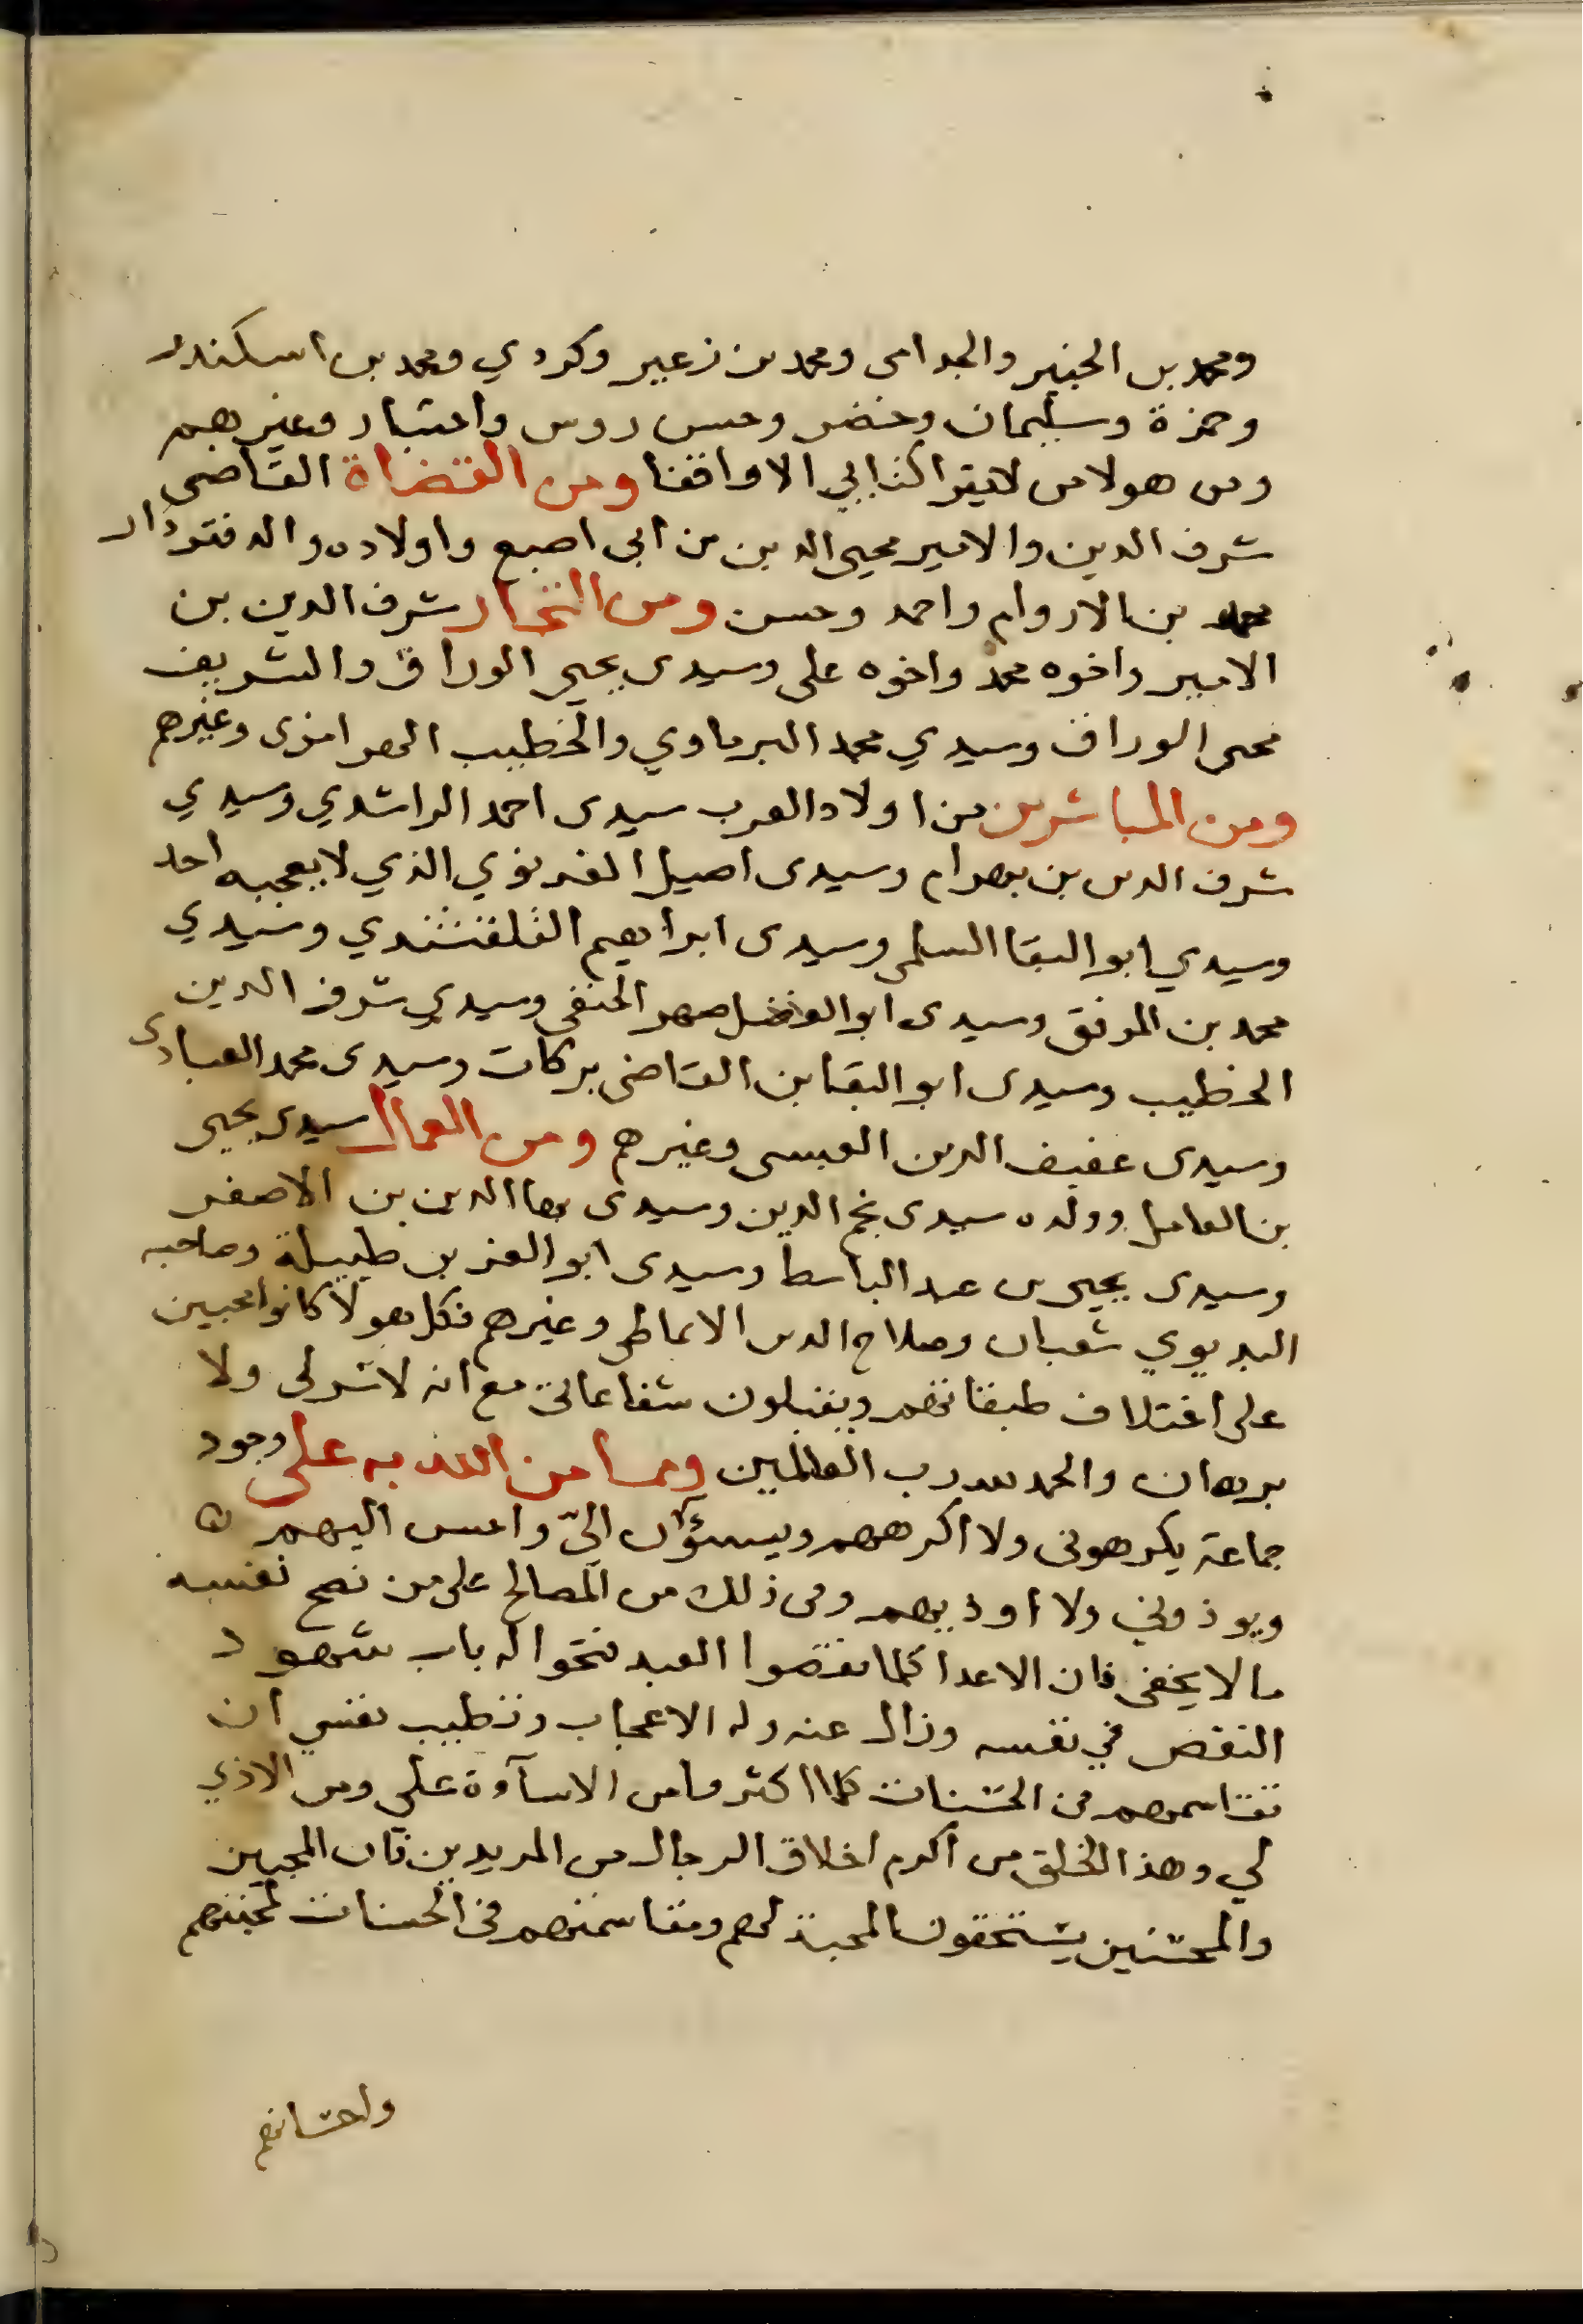 ومحمد بن الخبير والجدامى ومحمد بن زعير وكردي ومحمد بن اسكندر
وحمزة وسليمان وخضر وحسن روس واختيار وغيرهم
ومن هولا من لايقرا كتابي الا واقفا ومن القضاة القاضى
شرف الدين والامير محيى الدين من ابى اصبع واولاده والدفتردار
محمد بن الاروام واحمد وحسن ومن التجار شرف الدين بن
الامير واخوه محمد واخوه على وسيدى يحيى الوراق والشريف
محى الوراق وسيدي محمد البرماوي والخطيب وغيرهم
ومن المباشرين من اولاد العرب سيدى احمد الراشدي وسيدي
شرف الدين بن بهرام وسيدى اصيل الذي لا يعجبه احد
وسيدي ابو البقا السلمى وسيدى ابراهيم القلقشندي وسيدي
محمد بن الموفق وسيدى ابو الفضل صهر الحنفى وسيدي شرف الدين
الخطيب وسيدى ابو البقا بن القاضى بركات وسيدى محمد العبادى
وسيدى عفيف الدين العبسى وغيرهم ومن العمال سيدى يحيى
بن العامل وولده سيدى نجم الدين وسيدى بها الدين بن الاصفر
وسيدى يحيى بن عبد الباسط وسيدى ابو العز بن طبيلة وصاحبه
البديوي شعبان وصلاح الدين الانماطى وغيرهم فكل هولا كانوا محبين
على اختلاف طبقاتهم ويقبلون شفاعاتى مع انه لا شرلى ولا
برهان والحمد لله رب العالمين ومما من الله به على وجود
جماعة يكرهونى ولا اكرههم ويسؤن الىّ واحسن اليهم
ويوذونى ولا اوذيهم وفى ذلك من المصالح على من نصح نفسه
ما لا يخفى فان الاعدا كلما نقصوا العبد فتحوا له باب شهود
النقص في نفسه وزال عنه وله الاعجاب وتطيب نفسي ان
تقاسمهم فى الحسنات كلما اكثروا من الاسآءة علي ومن الاذي
لي وهذا الخلق من اكرم اخلاق الرجال من المريدين فان المحبين
والمحسنين يستحقون المحبة لهم ومقاسمتهم فى الحسنات لمحبتهم
واحسانهم